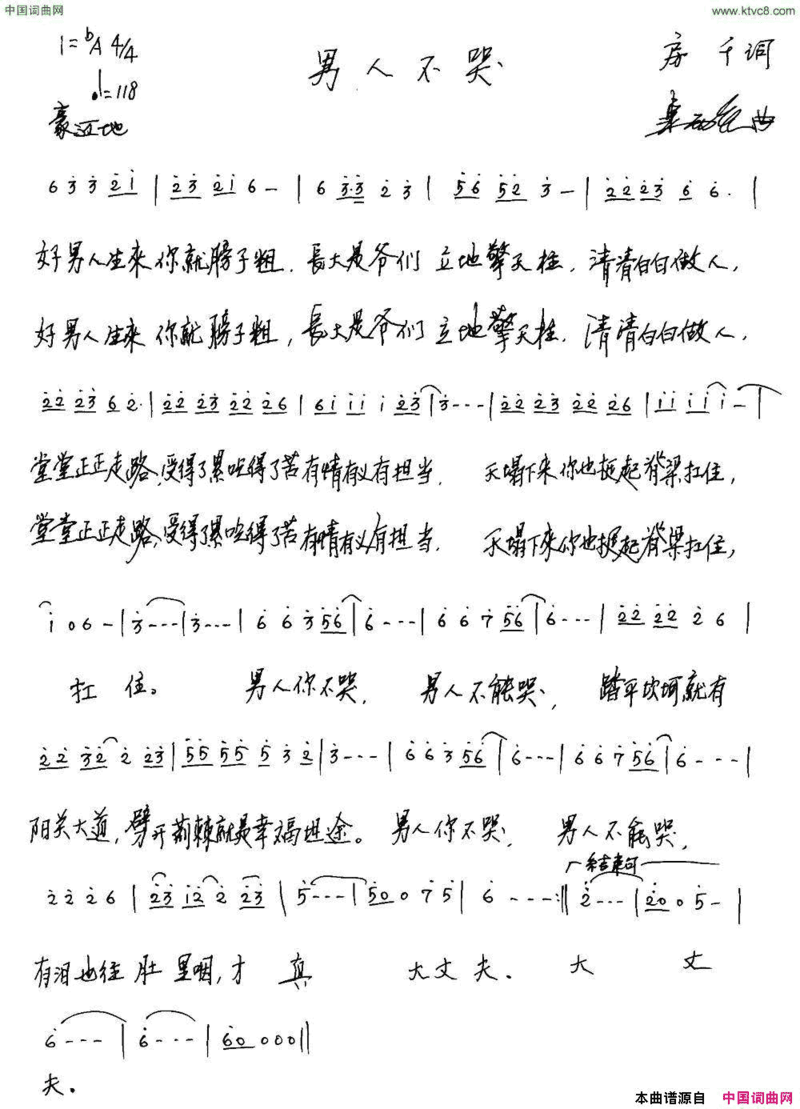 中国词曲网 www.ktvc8.com
1=ᵇA 4/4
♩=118
男人不哭
房千词
豪迈地
曲
6 3 3 2 1 | 2 3 2 1 6 – | 6 3·3 2 3 | 5 6 5 2 3 – | 2 2 2 3 6 6· |
好男人生來你就膀子粗，長大是爷们立地擎天柱，清清白白做人，
好男人生來你就膀子粗，長大是爷们立地擎天柱，清清白白做人，
2 2 2 3 6 2· | 2 2 2 3 2 2 2 6 | 6 1 1 1 1 2 3 | 3 - - - | 2 2 2 3 2 2 2 6 | 1 1 1 1 1 – |
堂堂正正走路，受得了累吃得了苦有情有义有担当，天塌下来你也挺起脊梁扛住，
堂堂正正走路，受得了累吃得了苦有情有义有担当，天塌下来你也挺起脊梁扛住，
1 0 6 – | 3 - - - | 3 - - - | 6 6 3 5 6 | 6 - - - | 6 6 7 5 6 | 6 - - - | 2 2 2 2 2 6 |
扛住。男人你不哭，男人不能哭，踏平坎坷就有
2 2 3 2 2 2 3 | 5 5 5 5 5 3 2 | 3 - - - | 6 6 3 5 6 | 6 - - - | 6 6 7 5 6 | 6 - - - |
阳关大道，劈开荊棘就是幸福坦途。男人你不哭，男人不能哭，
结束句
2 2 2 6 | 2 3 1 2 2 2 3 | 5 - - - | 5 0 0 7 5 | 6 - - - :‖ 2 - - - | 2 0 0 5 – |
有泪也往肚里咽，才真大丈夫。大丈
6 - - - | 6 - - - | 6 0 0 0 0 ‖
夫。
本曲谱源自 中国词曲网